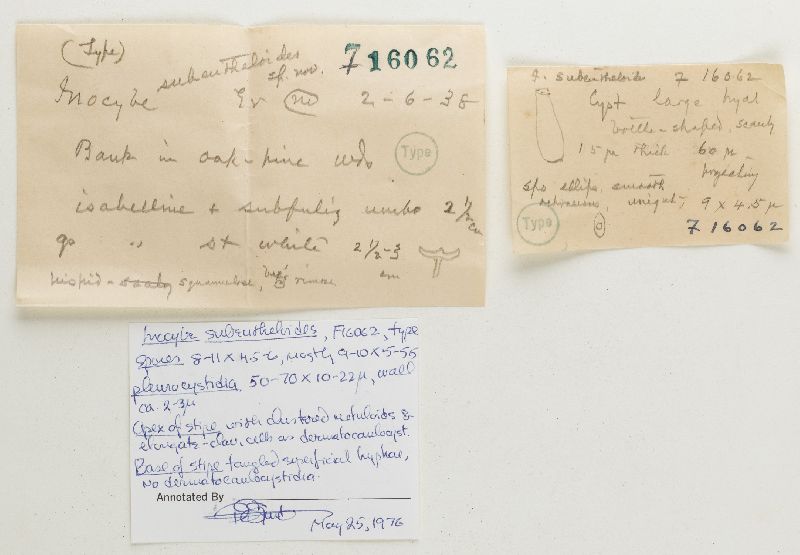 (Type)
subeutheloides
sp. nov.
716062
Inocybe Ev (no) 2-6-38
Type
Bank in oak-pine wds
isabelline + subfulig umbo 2 1/2 cm
gs " st white 2 1/2-3 cm
hispid - squamulose, rimose
I. subeutheloides 716062
Cyst large hyal
bottle-shaped, scanty
15 µ thick 60 µ
projecting
spo ellip, smooth
unigut, 9 x 4.5 µ
Type
716062
Inocybe subeutheloides, F16062, type
spores 8-11 x 4.5-6, mostly 9-10 x 5-5.5
pleurocystidia 50-70 x 10-22µ, wall
ca. 2-3µ
Apex of stipe with clustered metuloids &
elongate-clav. cells as dermatocaulocyst.
Base of stipe tangled superficial hyphae,
no dermatocaulocystidia.
Annotated By
May 25, 1976